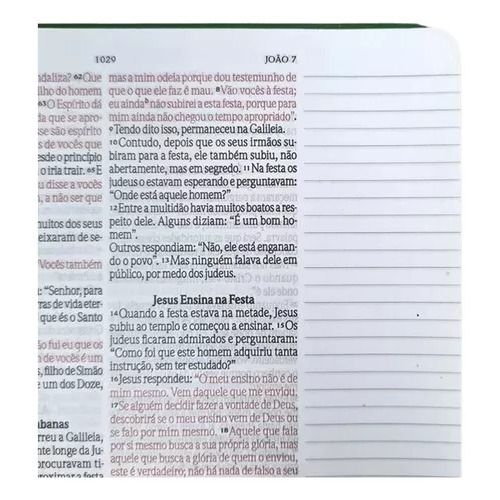 1029
JOÃO 7
ndaliza? 62 Que
ilho do homem
63 O Espírito dá
da que se apro-
sse são espírito
desde o princípio
o iria trair. 65 E
u disse a vocês
, a não ser que
muitos dos seus
eixaram de se-
Vocês também
: "Senhor, para
ras de vida eter-
que és o Santo
fui eu que os
de vocês é um
, filho de Simão
um dos Doze,
abanas
rreu a Galileia,
nte longe da Ju-
procuravam ti-
aproximando a
mas a mim odeia porque dou testemunho de
que o que ele faz é mau. 8 Vão vocês à festa;
eu ainda b não subirei a esta festa, porque para
mim ainda não chegou o tempo apropriado".
9 Tendo dito isso, permaneceu na Galileia.
10 Contudo, depois que os seus irmãos su-
biram para a festa, ele também subiu, não
abertamente, mas em segredo. 11 Na festa os
judeus o estavam esperando e perguntavam:
"Onde está aquele homem?"
12 Entre a multidão havia muitos boatos a res-
peito dele. Alguns diziam: "É um bom ho-
mem".
Outros respondiam: "Não, ele está enganan-
do o povo". 13 Mas ninguém falava dele em
público, por medo dos judeus.
Jesus Ensina na Festa
14 Quando a festa estava na metade, Jesus
subiu ao templo e começou a ensinar. 15 Os
judeus ficaram admirados e perguntaram:
"Como foi que este homem adquiriu tanta
instrução, sem ter estudado?"
16 Jesus respondeu: "O meu ensino não é de
mim mesmo. Vem daquele que me enviou.
17 Se alguém decidir fazer a vontade de Deus,
descobrirá se o meu ensino vem de Deus ou
se falo por mim mesmo. 18 Aquele que fala
por si mesmo busca a sua própria glória, mas
aquele que busca a glória de quem o enviou,
este é verdadeiro; não há nada de falso a seu